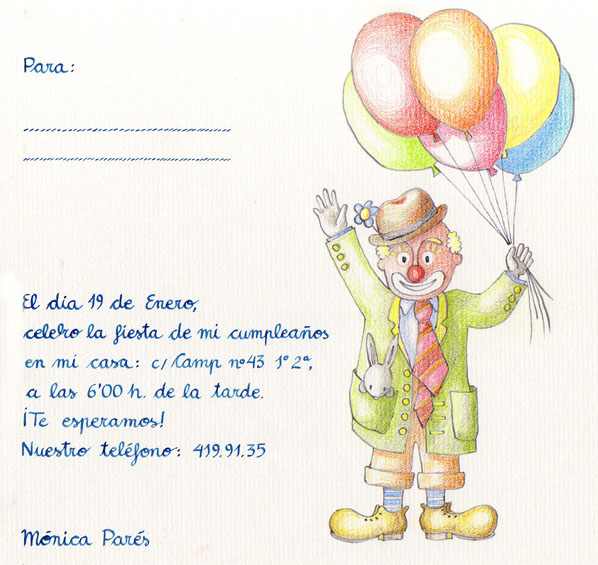 Para:
El día 19 de Enero,
celebro la fiesta de mi cumpleaños
en mi casa: c/Camp nº43 1º 2ª,
a las 6'00 h. de la tarde.
¡Te esperamos!
Nuestro teléfono: 419.91.35
Mónica Parés